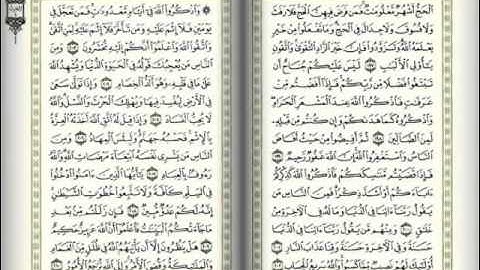 الْحَجُّ أَشْهُرٌ مَّعْلُومَاتٌ فَمَن فَرَضَ فِيهِنَّ الْحَجَّ فَلَا رَفَثَ
وَلَا فُسُوقَ وَلَا جِدَالَ فِي الْحَجِّ وَمَا تَفْعَلُوا مِنْ خَيْرٍ
يَعْلَمْهُ اللَّهُ وَتَزَوَّدُوا فَإِنَّ خَيْرَ الزَّادِ التَّقْوَىٰ وَاتَّقُونِ
يَا أُولِي الْأَلْبَابِ ١٩٧ لَيْسَ عَلَيْكُمْ جُنَاحٌ أَن
تَبْتَغُوا فَضْلًا مِّن رَّبِّكُمْ فَإِذَا أَفَضْتُم مِّنْ
عَرَفَاتٍ فَاذْكُرُوا اللَّهَ عِندَ الْمَشْعَرِ الْحَرَامِ
وَاذْكُرُوهُ كَمَا هَدَاكُمْ وَإِن كُنتُم مِّن قَبْلِهِ
لَمِنَ الضَّالِّينَ ١٩٨ ثُمَّ أَفِيضُوا مِنْ حَيْثُ أَفَاضَ
النَّاسُ وَاسْتَغْفِرُوا اللَّهَ إِنَّ اللَّهَ غَفُورٌ رَّحِيمٌ ١٩٩
فَإِذَا قَضَيْتُم مَّنَاسِكَكُمْ فَاذْكُرُوا اللَّهَ كَذِكْرِكُمْ
آبَاءَكُمْ أَوْ أَشَدَّ ذِكْرًا فَمِنَ النَّاسِ مَن
يَقُولُ رَبَّنَا آتِنَا فِي الدُّنْيَا وَمَا لَهُ فِي الْآخِرَةِ مِنْ
خَلَاقٍ ٢٠٠ وَمِنْهُم مَّن يَقُولُ رَبَّنَا آتِنَا فِي الدُّنْيَا
حَسَنَةً وَفِي الْآخِرَةِ حَسَنَةً وَقِنَا عَذَابَ النَّارِ ٢٠١
أُولَٰئِكَ لَهُمْ نَصِيبٌ مِّمَّا كَسَبُوا وَاللَّهُ سَرِيعُ الْحِسَابِ ٢٠٢
وَاذْكُرُوا اللَّهَ فِي أَيَّامٍ مَّعْدُودَاتٍ فَمَن تَعَجَّلَ فِي
يَوْمَيْنِ فَلَا إِثْمَ عَلَيْهِ وَمَن تَأَخَّرَ فَلَا إِثْمَ عَلَيْهِ لِمَنِ اتَّقَىٰ
وَاتَّقُوا اللَّهَ وَاعْلَمُوا أَنَّكُمْ إِلَيْهِ تُحْشَرُونَ ٢٠٣ وَمِنَ
النَّاسِ مَن يُعْجِبُكَ قَوْلُهُ فِي الْحَيَاةِ الدُّنْيَا وَيُشْهِدُ اللَّهَ
عَلَىٰ مَا فِي قَلْبِهِ وَهُوَ أَلَدُّ الْخِصَامِ ٢٠٤ وَإِذَا تَوَلَّىٰ سَعَىٰ
فِي الْأَرْضِ لِيُفْسِدَ فِيهَا وَيُهْلِكَ الْحَرْثَ وَالنَّسْلَ وَاللَّهُ
لَا يُحِبُّ الْفَسَادَ ٢٠٥ وَإِذَا قِيلَ لَهُ اتَّقِ اللَّهَ أَخَذَتْهُ الْعِزَّةُ
بِالْإِثْمِ فَحَسْبُهُ جَهَنَّمُ وَلَبِئْسَ الْمِهَادُ ٢٠٦ وَمِنَ
النَّاسِ مَن يَشْرِي نَفْسَهُ ابْتِغَاءَ مَرْضَاتِ اللَّهِ وَاللَّهُ
رَءُوفٌ بِالْعِبَادِ ٢٠٧ يَا أَيُّهَا الَّذِينَ آمَنُوا ادْخُلُوا
فِي السِّلْمِ كَافَّةً وَلَا تَتَّبِعُوا خُطُوَاتِ الشَّيْطَانِ
إِنَّهُ لَكُمْ عَدُوٌّ مُّبِينٌ ٢٠٨ فَإِن زَلَلْتُم مِّن بَعْدِ
مَا جَاءَتْكُمُ الْبَيِّنَاتُ فَاعْلَمُوا أَنَّ اللَّهَ عَزِيزٌ حَكِيمٌ
٢٠٩ هَلْ يَنظُرُونَ إِلَّا أَن يَأْتِيَهُمُ اللَّهُ فِي ظُلَلٍ مِّنَ الْغَمَامِ
وَالْمَلَائِكَةُ وَقُضِيَ الْأَمْرُ وَإِلَى اللَّهِ تُرْجَعُ الْأُمُورُ ٢١٠